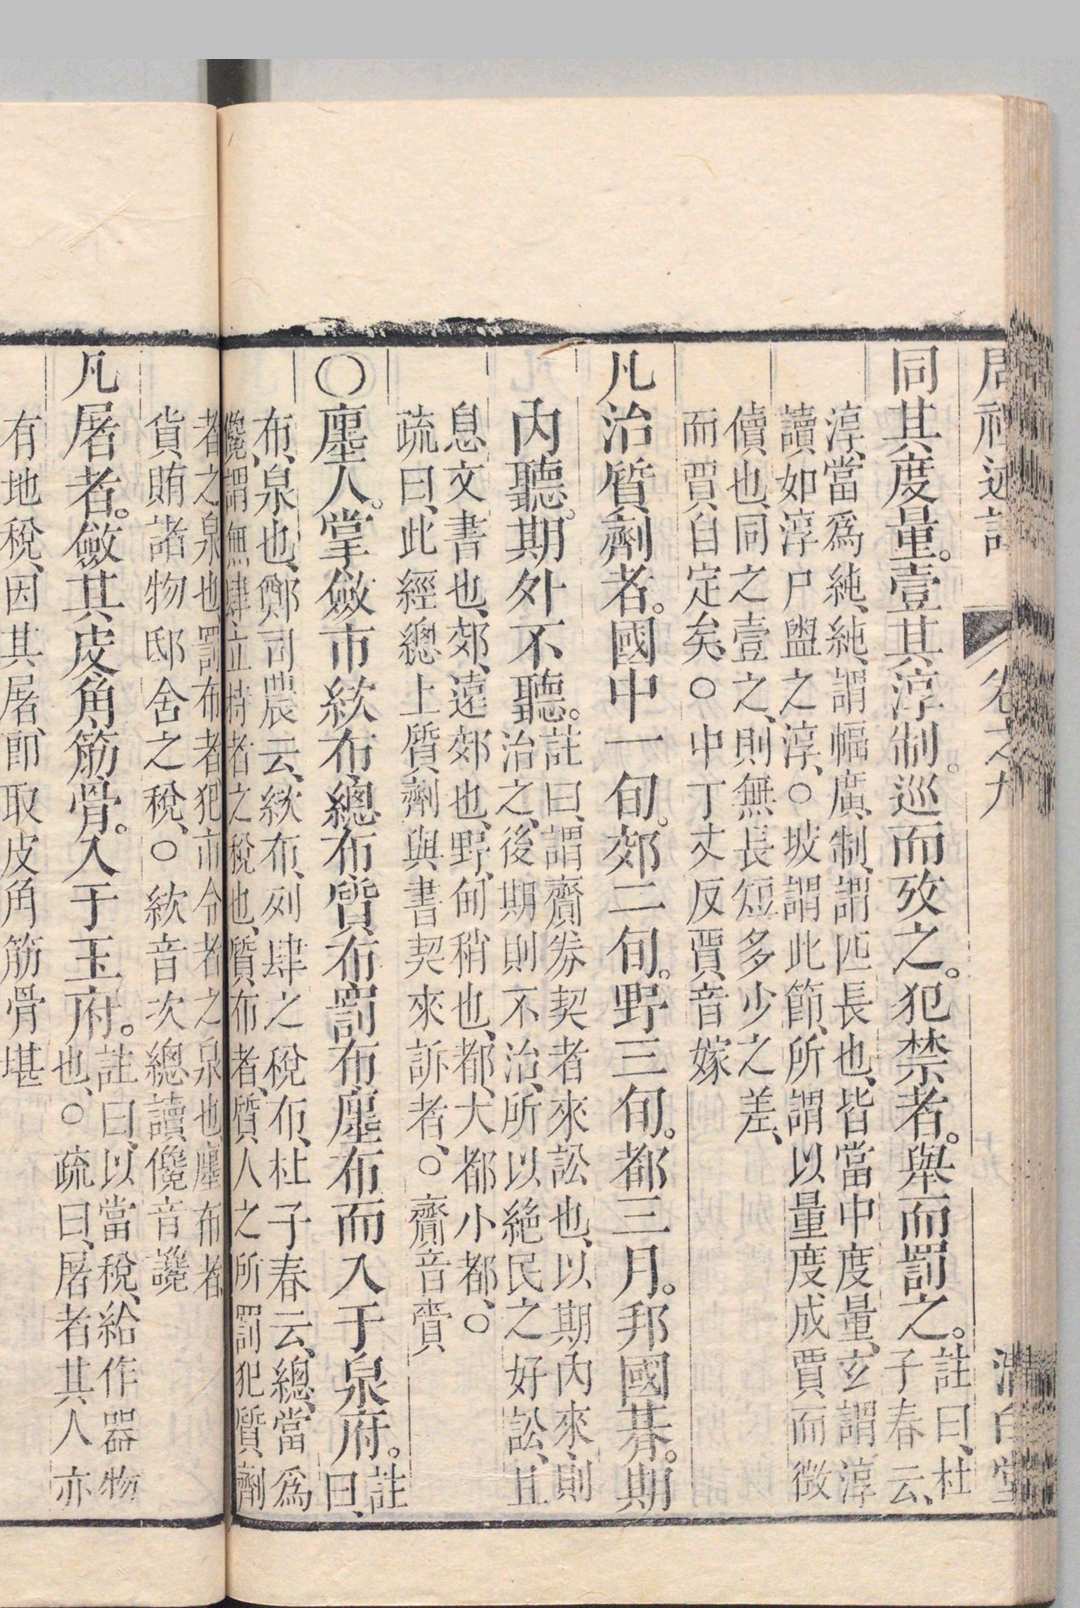 周禮述註 卷之九 清白堂
同其度量。壹其淳制。巡而攷之。犯禁者。舉而罰之。註曰、杜
子春云、
淳、當爲純、純、謂幅廣、制、謂匹長也、皆當中度量、玄謂淳
讀如淳尸盥之淳、○坡謂此節、所謂以量度成賈而徵
儥、也、同之壹之、則無長短多少之差、
而賈、自定矣、○中丁丈反賈、音嫁
凡治質劑者。國中一旬。郊二旬。野三旬。都三月。邦國朞。期
內聽。期外不聽。註曰、謂齎券契者來訟也、以期內來、則
治之、後期則不治、所以絶民之好訟、且
息文書也、郊、遠郊也、野、甸稍也、都、大都小都、○
疏曰、此經總上質劑與書契來訴者、○齎音賷
○廛人。掌斂市絘布總布質布罰布廛布而入于泉府。註
曰、
布、泉也、鄭司農云、絘布、列肆之稅布、杜子春云、總、當爲
儳、謂無肆立持者之稅也、質、布者、質、人之所罰犯質、劑
者之泉也、罰布者、犯市令者之泉也、廛布者
貨賄諸物邸舍之稅、○絘音次總讀儳音讒
凡屠者。斂其皮角筋骨。入于玉府。註曰、以當稅、給作器物
也、○疏曰、屠者其人亦
有地稅、因其屠、卽取皮角筋骨堪